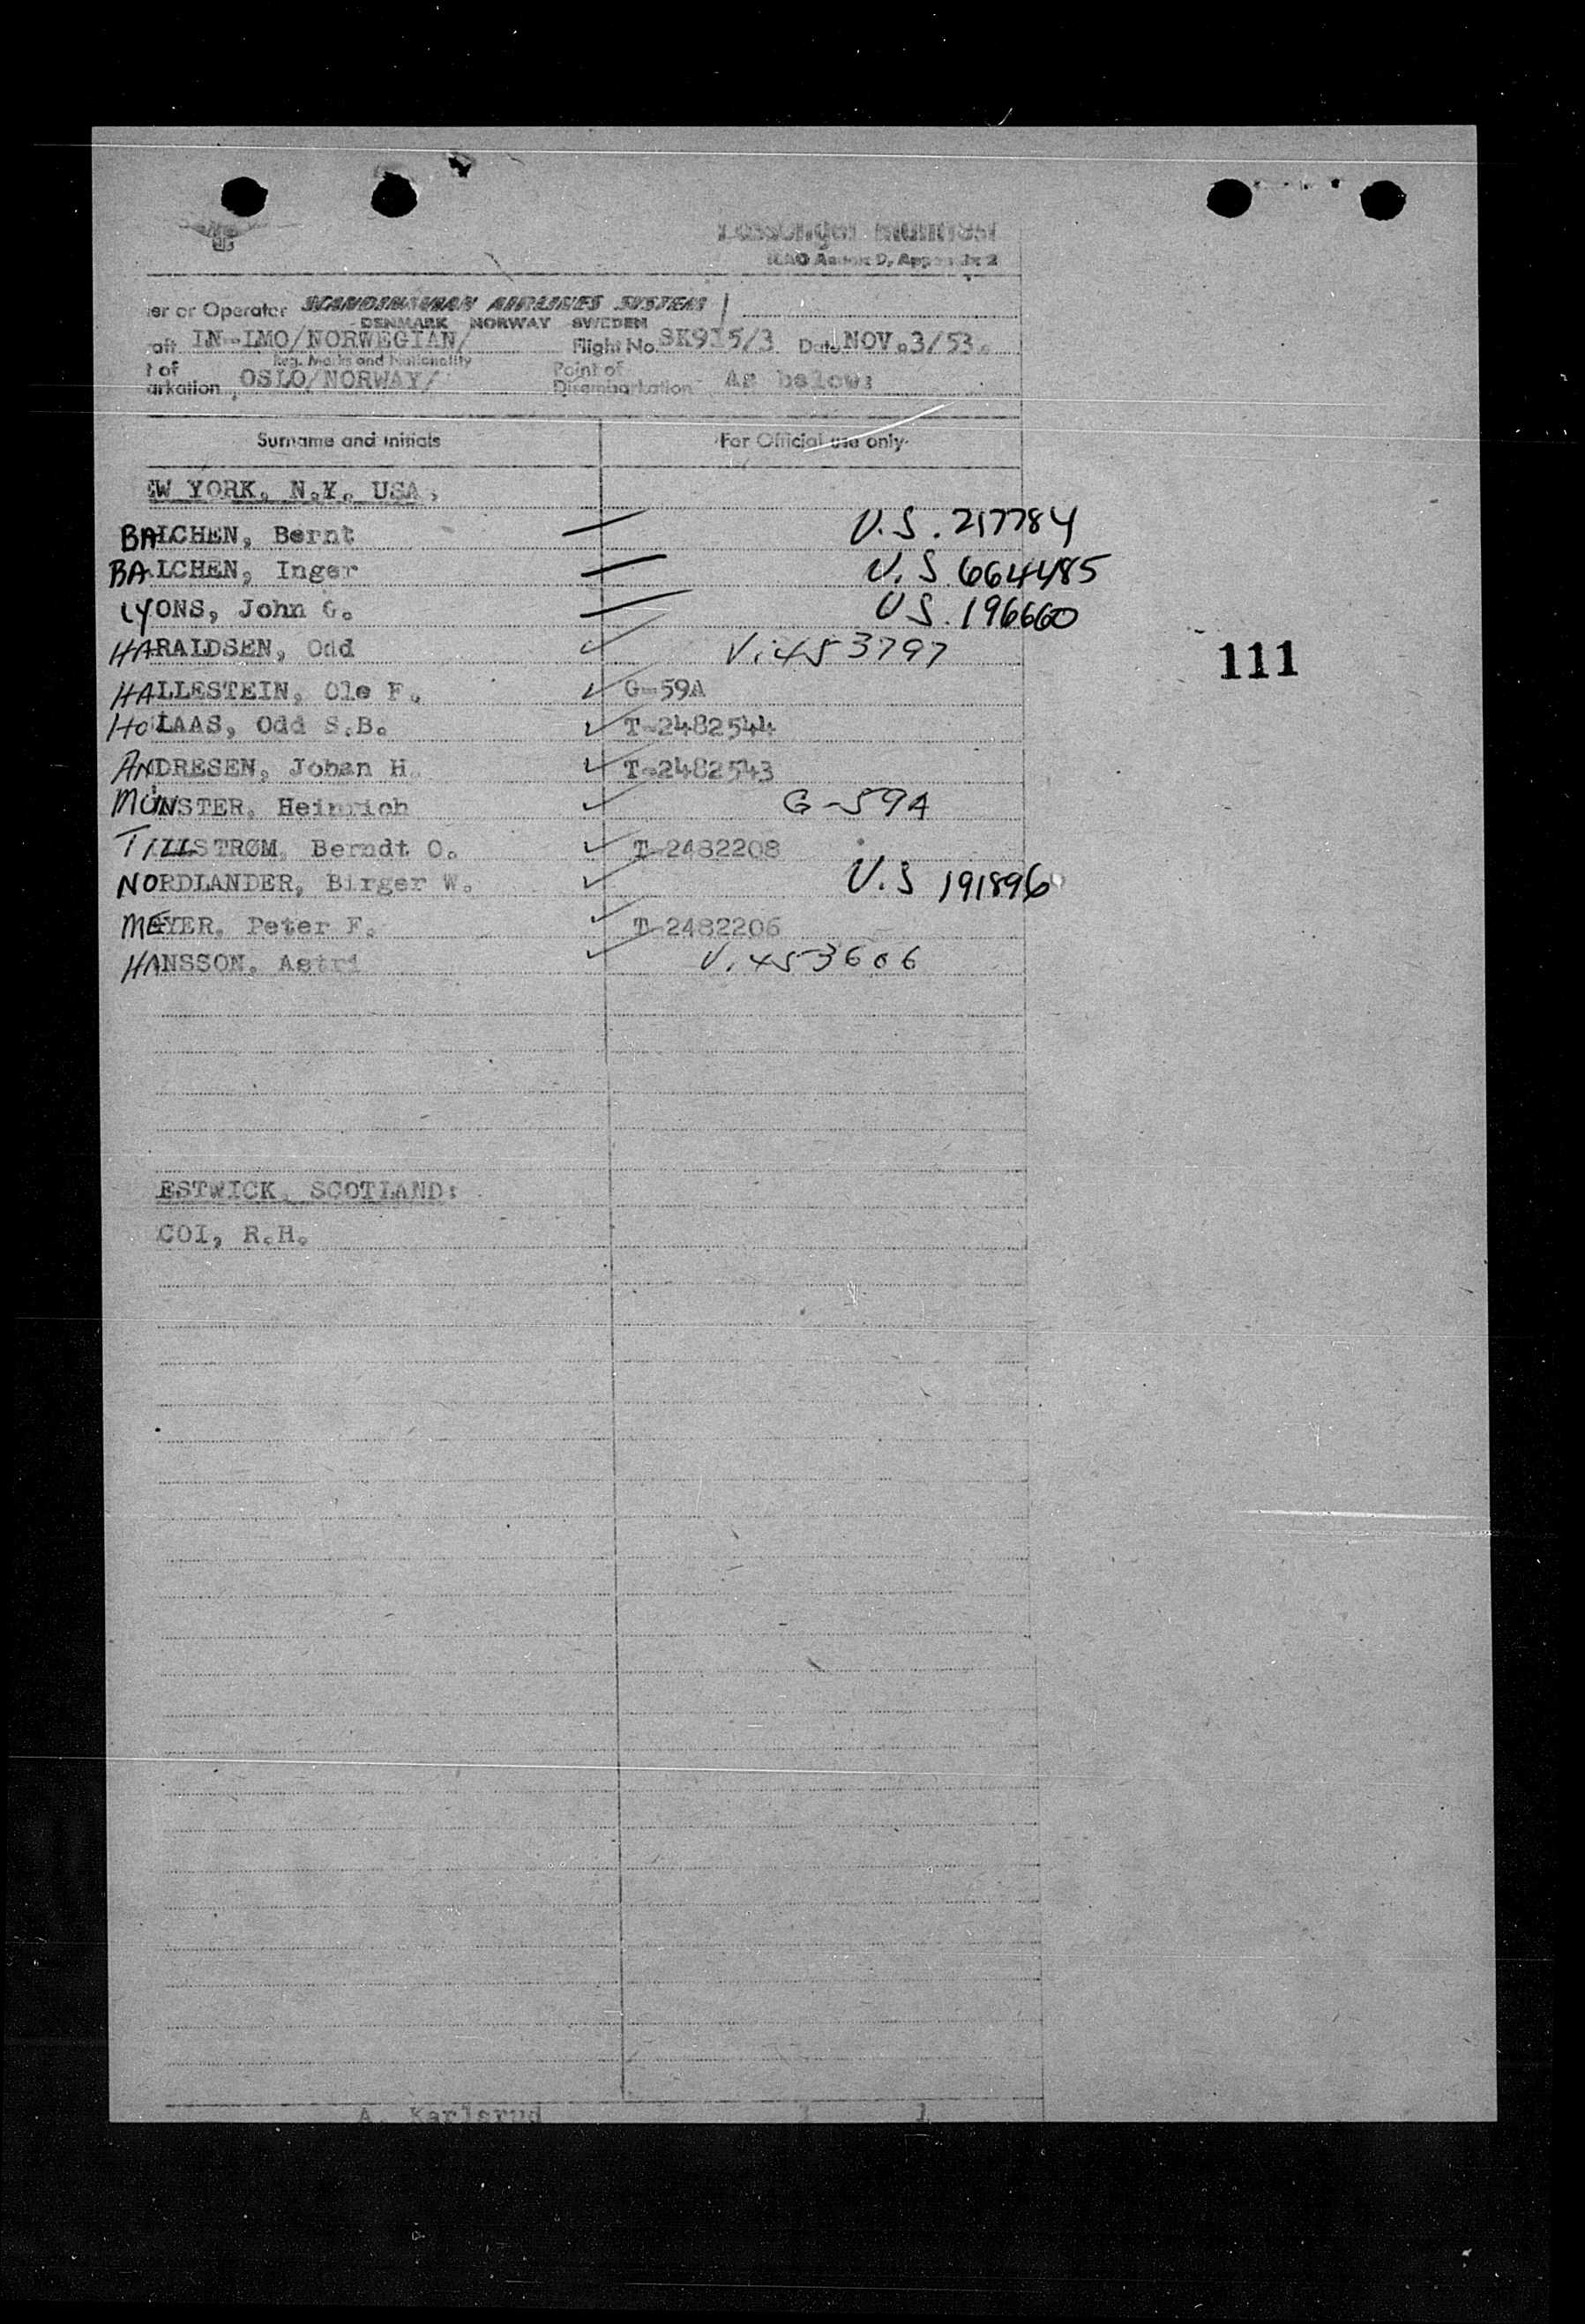 Passenger Manifest
ICAO Annex D, Appendix 2
er or Operator SCANDINAVIAN AIRLINES SYSTEM
DENMARK NORWAY SWEDEN
aft LN-LMO/NORWEGIAN/ Flight No. SK915/3 Date NOV.3/53.
Reg. Marks and Nationality
t of
arkation OSLO/NORWAY/ Point of Disembarkation As below:
Surname and initials For Official use only
EW YORK, N.Y. USA.
BALCHEN, Bernt U.S. 217784
BALCHEN, Inger U.S. 664485
LYONS, John G. US. 196660
HARALDSEN, Odd V.453797
111
HALLESTEIN, Ole F. G-59A
HOLAAS, Odd S.B. T-2482544
ANDRESEN, Johan H. T-2482543
MÜNSTER, Heinrich G-59A
TILLSTRØM, Berndt O. T-2482208
NORDLANDER, Birger W. U.S 191896
MEYER, Peter F. T-2482206
HANSSON, Astri V.453606
ESTWICK, SCOTLAND:
COI, R.H.
A. Karlsrud 1 1